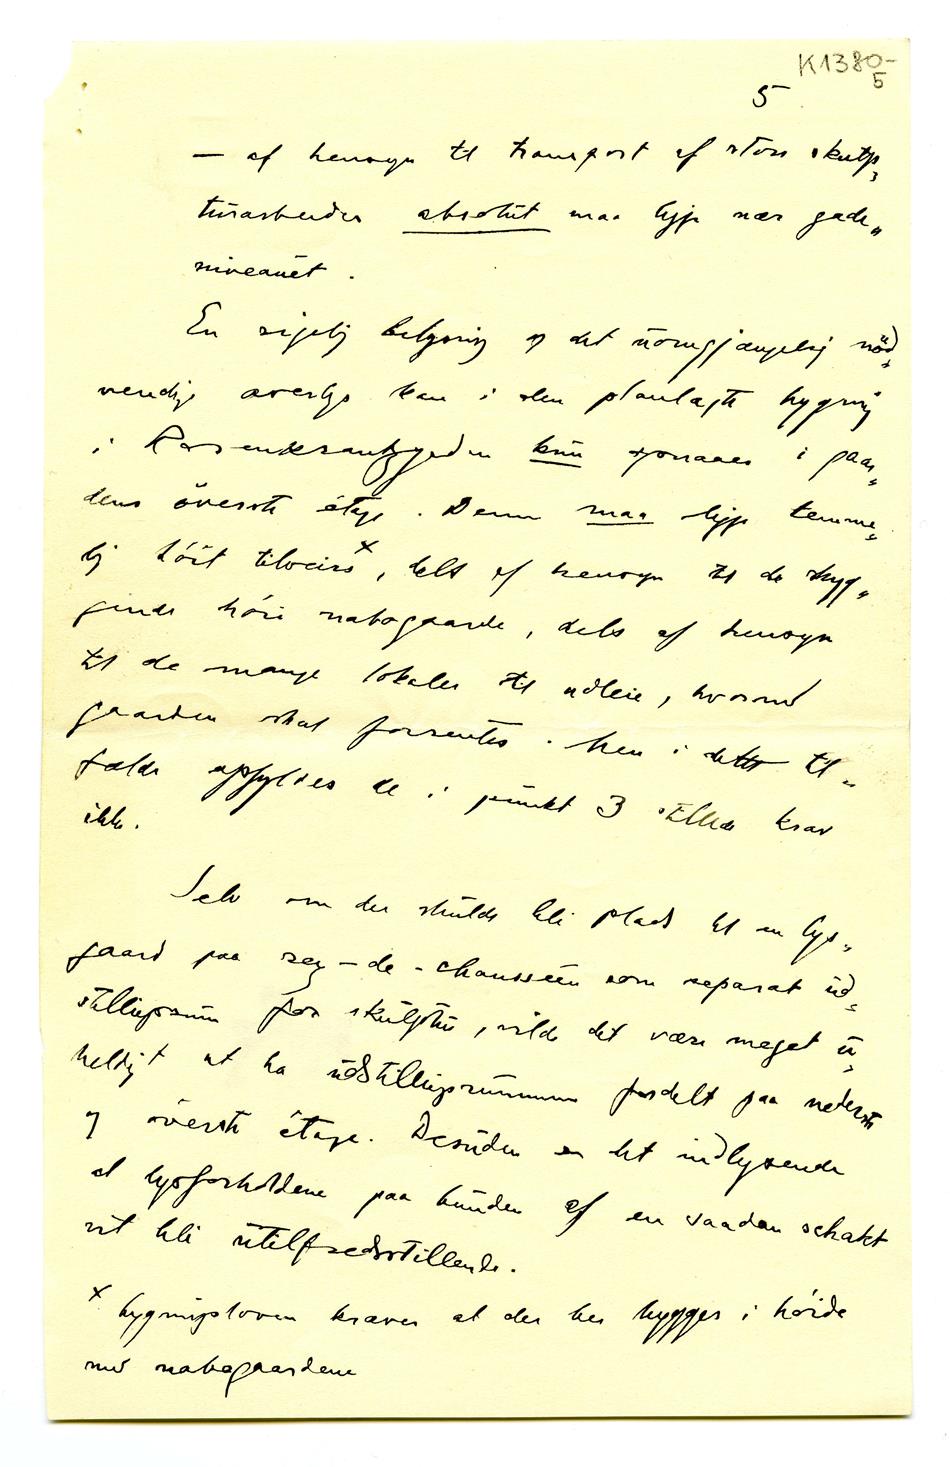 K1380-
5
5
— af hensyn til transport af store skulp„
türarbeider absolut maa ligge nær gade„
niveauet.
En rigelig belysning og det uomgjængelig nöd„
vendige overlys kan i den planlagte bygning
i Rosenkrantzgaden kun opnaaes i gaar„
dens överste étage. Denne maa ligge temme„
lig höit tilveirs x, dels af hensyn til de skyg„
gende höie nabogaarde, dels af hensyn
til de mange lokaler til udleie, hvormed
gaarden skal forrentes. Men i dette til„
fælde opfyldes de i punkt 3 stillede krav
ikke.
Selv om der skulde bli plads til en lys„
gaard paa rez-de-chausséen som separat ud„
stillingsrum for skulptur, vilde det være meget u„
heldigt at ha udstillingsrummene fordelt paa nederste
og överste étage. Desuden er det indlysende
at lysforholdene paa bunden af en saadan schakt
vil bli utilfredsstillende.
x bygningsloven kræver at der her bygges i höide
med nabogaardene